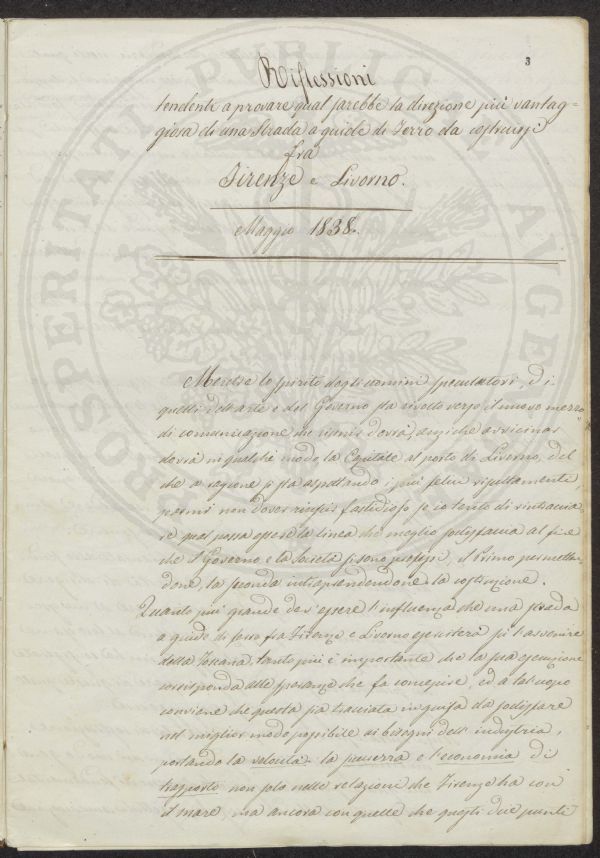 3
Riflessioni
tendenti a provare qual sarebbe la direzione più vantag=
giosa di una Strada a guide di Ferro da costruirsi
fra
Firenze e Livorno.
Maggio 1838.
Mentre lo spirito degli uomini speculatori, di
quelli dell'arte e del Governo sta rivolto verso il nuovo mezzo
di comunicazione che riunir dovrà, anziche avvicinar
dovrà in qualche modo la Capitale al porto di Livorno, del
che a ragione si sta aspettando i più felici resultamenti
parmi non dover riuscir fastidioso se io tento di rintraccia
re qual possa essere la linea che meglio sodisfaccia al fine
che il Governo e la Società si sono prefissi, il Primo permetten
done, la seconda intraprendendone la costruzione.
Quanto piu' grande dev'essere l'influenza che una strada
a guide di ferro fra Firenze e Livorno eserciterà per l'avvenire
della Toscana, tanto più è importante che la sua esecuzione
corrisponda alle speranze che fa concepire, ed a tal uopo
conviene che questa sia tracciata in guisa da sodisfare
nel miglior modo possibile ai bisogni dell'industria,
portando la velocità la sicurezza e l'economia di
trasporto non solo nelle relazioni che Firenze ha con
il mare, ma ancora con quelle che questi due punti
PROSPERITATI PVBLICAE AVGENDAE